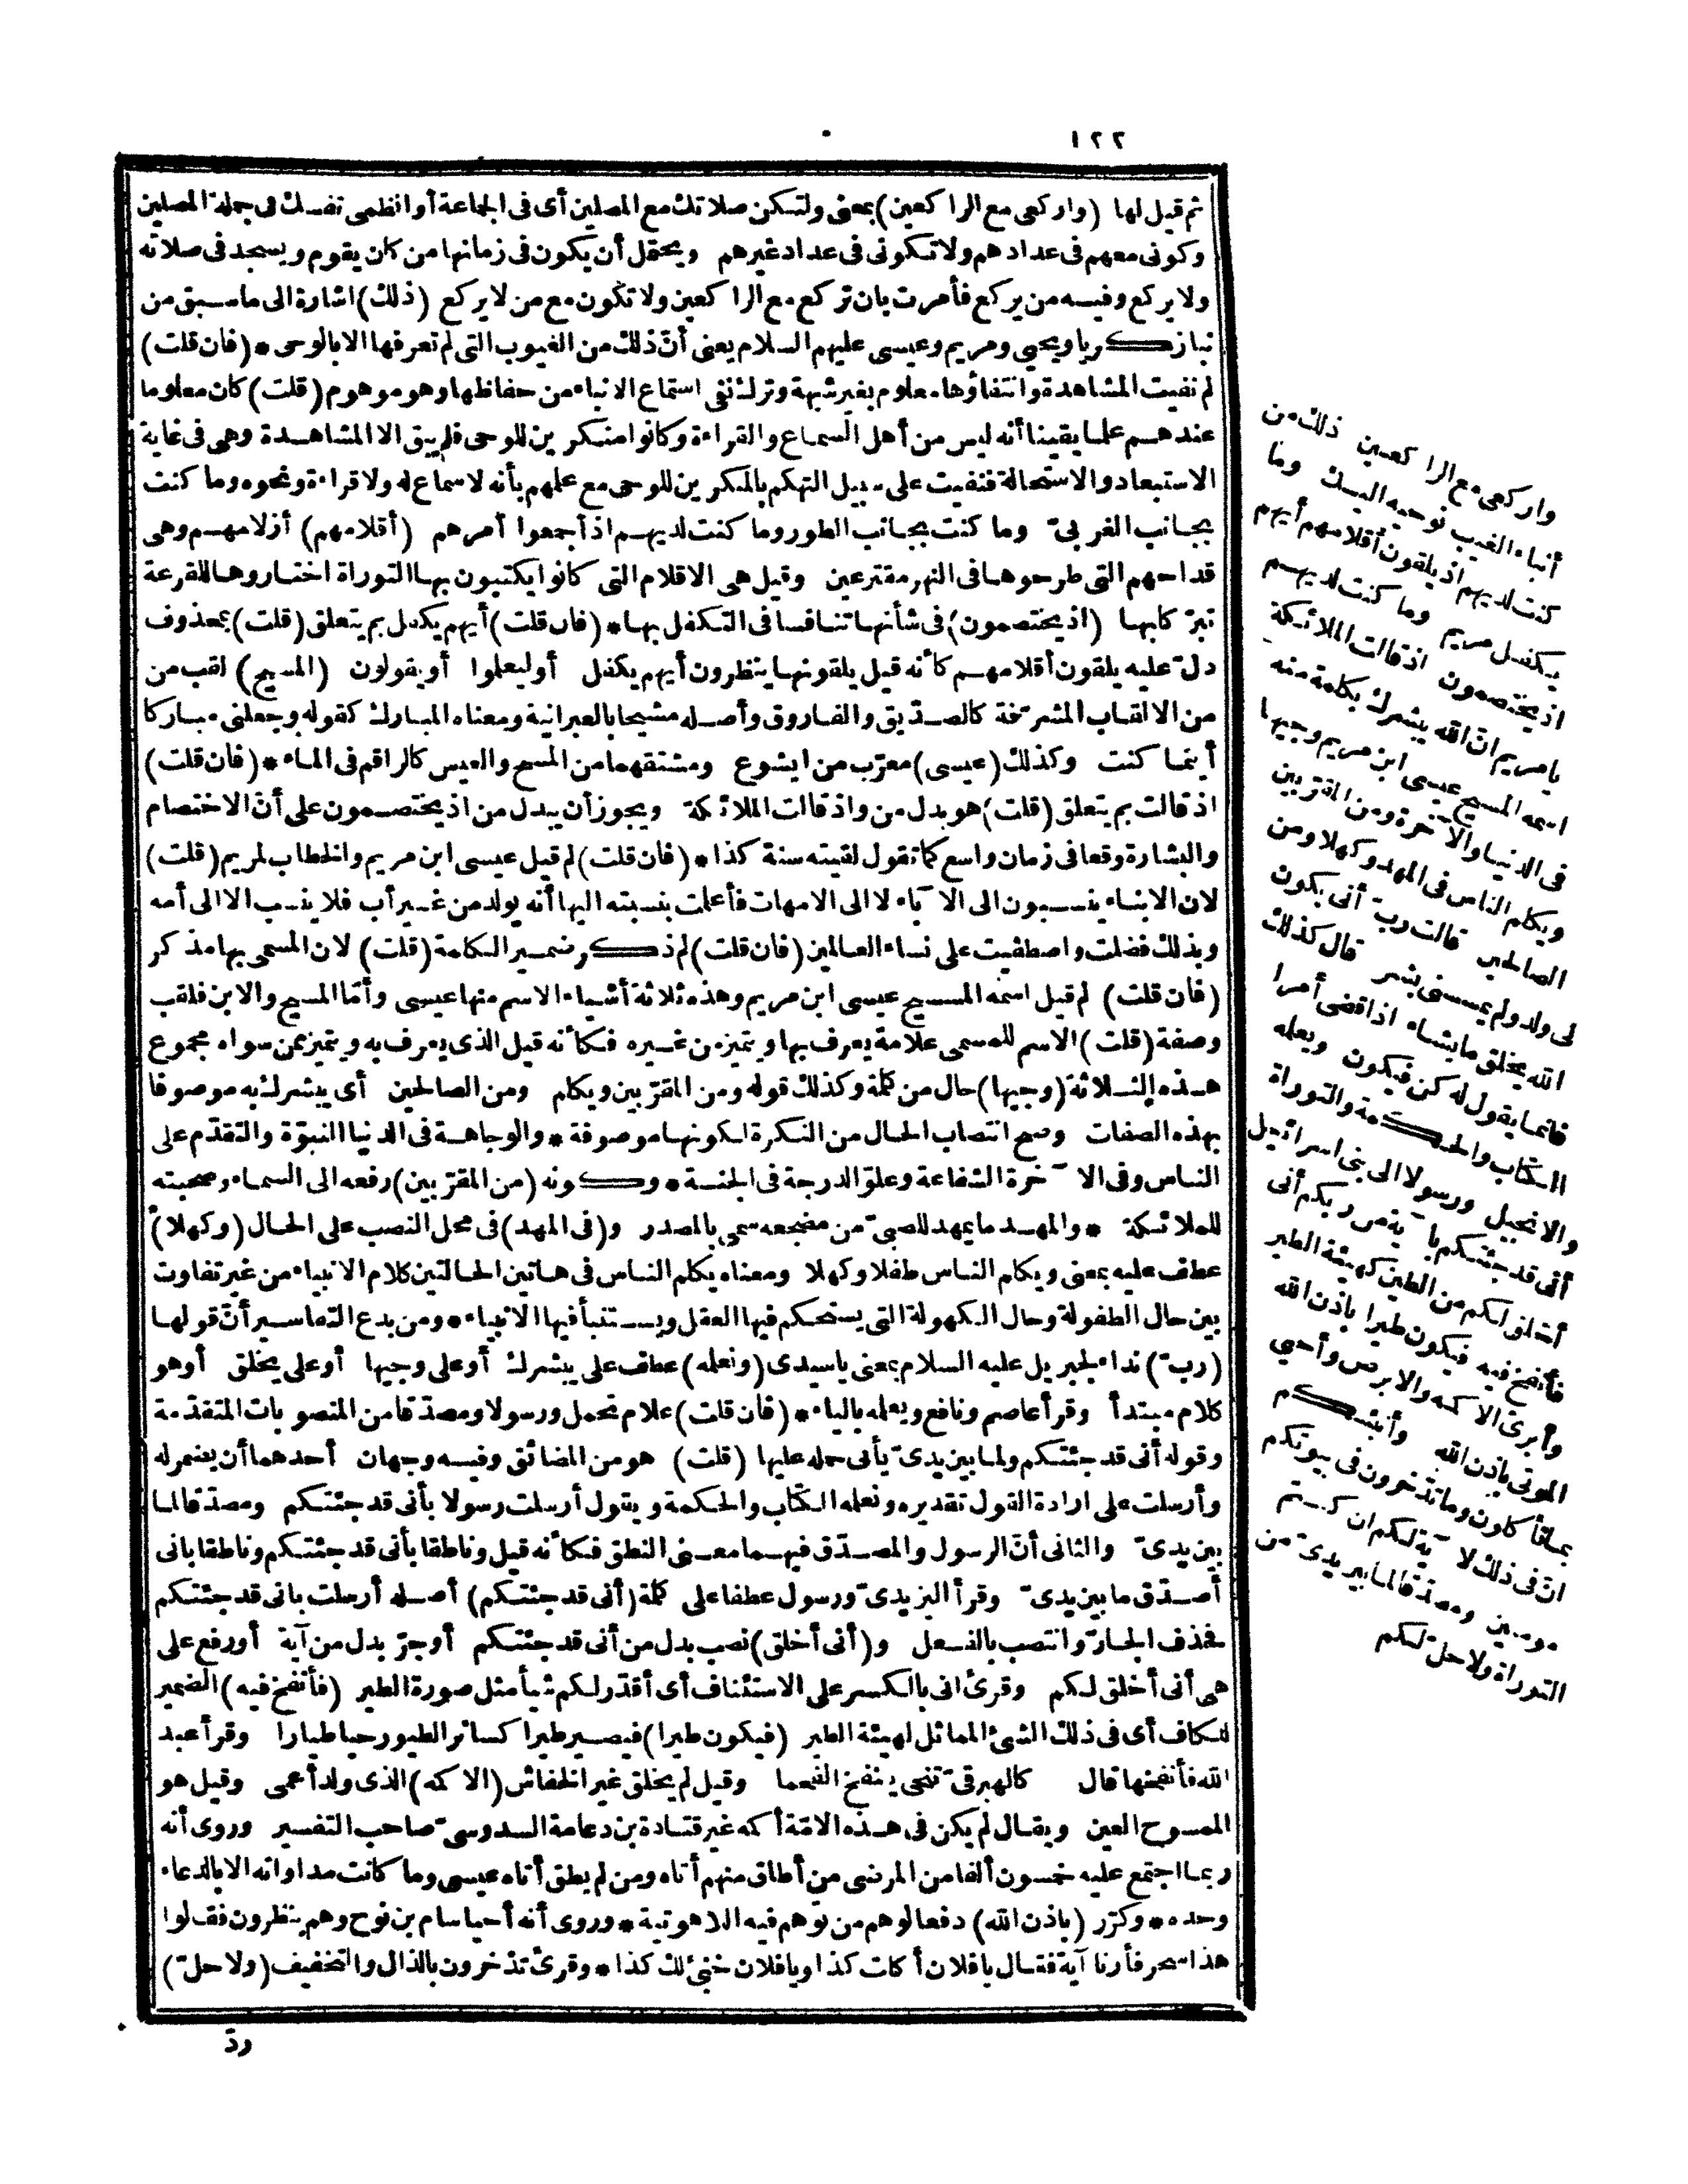 ١٢٢
ثم قيل لها (واركعى مع الراكعين) بمعنى ولتكن صلاتك مع المصلين أى فى الجماعة أو انظمى نفسك فى جملة المصلين
وكونى معهم فى عدادهم ولا تكونى فى عداد غيرهم ويحتمل أن يكون فى زمانها من كان يقوم ويسجد فى صلاته
ولا يركع وفيه من يركع فأمرت بان تركع مع الراكعين ولا تكون مع من لا يركع (ذلك) اشارة الى ما سبق من
نبا زكريا ويحيى ومريم وعيسى عليهم السلام يعنى أنّ ذلك من الغيوب التى لم تعرفها الا بالوحى * (فان قلت)
لم نفيت المشاهدة وانتفاؤها معلوم بغير شبهة وترك نفى استماع الانباء من حفاظها وهو موهوم (قلت) كان معلوما
عندهم علما يقينا أنه ليس من أهل السماع والقراءة وكانوا منكرين للوحى فلم يبق الا المشاهدة وهى فى غاية
الاستبعاد والاستحالة فنفيت على سبيل التهكم بالمنكرين للوحى مع علمهم بأنه لا سماع له ولا قراءة ونحوه وما كنت
بجانب الغربىّ وما كنت بجانب الطور وما كنت لديهم اذ أجمعوا أمرهم (أقلامهم) أزلامهم وهى
قداحهم التى طرحوها فى النهر مقترعين وقيل هى الاقلام التى كانوا يكتبون بها التوراة اختاروها للقرعة
تبرّكا بها (اذ يختصمون) فى شأنها تنافسا فى التكفل بها * (فان قلت) أيهم يكفل بم يتعلق (قلت) بمحذوف
دلّ عليه يلقون أقلامهم كأنه قيل يلقونها ينظرون أيهم يكفل أو ليعلموا أو يقولون (المسيح) لقب من
من الالقاب المشرّفة كالصدّيق والفاروق وأصله مشيحا بالعبرانية ومعناه المبارك كقوله وجعلنى مباركا
أينما كنت وكذلك (عيسى) معرّب من ايشوع ومشتقهما من المسح والعيس كالراقم فى الماء * (فان قلت)
اذ قالت بم يتعلق (قلت) هو بدل من واذ قالت الملائكة ويجوز أن يبدل من اذ يختصمون على أنّ الاختصام
والبشارة وقعا فى زمان واسع كما تقول لقيته سنة كذا * (فان قلت) لم قيل عيسى ابن مريم والخطاب لمريم (قلت)
لان الابناء ينسبون الى الآباء لا الى الامهات فأعلمت بنسبته اليها أنه يولد من غير أب فلا ينسب الا الى أمه
وبذلك فضلت واصطفيت على نساء العالمين (فان قلت) لم ذكر ضمير الكلمة (قلت) لان المسمى بها مذكر
(فان قلت) لم قيل اسمه المسيح عيسى ابن مريم وهذه ثلاثة أشياء الاسم منها عيسى وأمّا المسيح والابن فلقب
وصفة (قلت) الاسم للمسمى علامة يعرف بها ويتميز من غيره فكأنه قيل الذى يعرف به ويتميز عمن سواه مجموع
هذه الثلاثة (وجيها) حال من كلمة وكذلك قوله ومن المقرّبين ويكلم ومن الصالحين أى يبشرك به موصوفا
بهذه الصفات وصح انتصاب الحال من النكرة لكونها موصوفة * والوجاهة فى الدنيا النبوّة والتقدّم على
الناس وفى الآخرة الشفاعة وعلوّ الدرجة فى الجنة * وكونه (من المقرّبين) رفعه الى السماء وصحبته
للملائكة * والمهد ما يمهد للصبىّ من مضجعه سمى بالمصدر و(فى المهد) فى محل النصب على الحال (وكهلا)
عطف عليه بمعنى ويكلم الناس طفلا وكهلا ومعناه يكلم الناس فى هاتين الحالتين كلام الانبياء من غير تفاوت
بين حال الطفولة وحال الكهولة التى يستحكم فيها العقل ويستنبأ فيها الانبياء * ومن بدع التفاسير أنّ قولها
(ربّ) نداء لجبريل عليه السلام بمعنى يا سيدى (ونعلمه) عطف على يبشرك أو على وجيها أو على يخلق أو هو
كلام مبتدأ وقرأ عاصم ونافع ويعلمه بالياء * (فان قلت) علام تحمل ورسولا ومصدّقا من المنصوبات المتقدّمة
وقوله أنى قد جئتكم ولما بين يدىّ يأبى حمله عليها (قلت) هو من المضائق وفيه وجهان أحدهما أن يضمر له
وأرسلت على ارادة القول تقديره ونعلمه الكتاب والحكمة ويقول أرسلت رسولا بأنى قد جئتكم ومصدّقا لما
بين يدىّ والثانى أنّ الرسول والمصدّق فيهما معنى النطق فكأنه قيل وناطقا بأنى قد جئتكم وناطقا بانى
أصدّق ما بين يدىّ وقرأ اليزيدىّ ورسول عطفا على كلمة (أنى قد جئتكم) أصله أرسلت بانى قد جئتكم
فحذف الجارّ وانتصب بالفعل و(أنى أخلق) نصب بدل من أنى قد جئتكم أو جرّ بدل من آية أو رفع على
هى أنى أخلق لكم وقرئ انى بالكسر على الاستئناف أى أقدّر لكم شيأ مثل صورة الطير (فأنفخ فيه) الضمير
للكاف أى فى ذلك الشئ المماثل لهيئة الطير (فيكون طيرا) فيصير طيرا كسائر الطيور حيا طيارا وقرأ عبد
الله فأنفخها قال كالهبرقىّ تنحى ينفخ الفحما وقيل لم يخلق غير الخفاش (الاكمه) الذى ولد أعمى وقيل هو
الممسوح العين ويقال لم يكن فى هذه الامّة أكمه غير قتادة بن دعامة السدوسىّ صاحب التفسير وروى أنه
ربما اجتمع عليه خمسون ألفا من المرضى من أطاق منهم أتاه ومن لم يطق أتاه عيسى وما كانت مداواته الا بالدعاء
وحده * وكرّر (باذن الله) دفعا لوهم من توهم فيه اللاهوتية * وروى أنه أحيا سام بن نوح وهم ينظرون فقالوا
هذا سحر فأرنا آية فقال يا فلان أكلت كذا ويا فلان خبئ لك كذا * وقرئ تذخرون بالذال والتخفيف (ولا حلّ)
ردّ
واركعى مع الراكعين ذلك من
أنباء الغيب نوحيه اليك وما
كنت لديهم اذ يلقون أقلامهم أيهم
يكفل مريم وما كنت لديهم
اذ يختصمون اذ قالت الملائكة
يا مريم انّ الله يبشرك بكلمة منه
اسمه المسيح عيسى ابن مريم وجيها
فى الدنيا والآخرة ومن المقرّبين
ويكلم الناس فى المهد وكهلا ومن
الصالحين قالت ربّ أنى يكون
لى ولد ولم يمسسنى بشر قال كذلك
الله يخلق ما يشاء اذا قضى أمرا
فانما يقول له كن فيكون ويعلمه
الكتاب والحكمة والتوراة
والانجيل ورسولا الى بنى اسرائيل
أنى قد جئتكم بآية من ربكم أنى
أخلق لكم من الطين كهيئة الطير
فأنفخ فيه فيكون طيرا باذن الله
وأبرئ الاكمه والابرص وأحيى
الموتى باذن الله وأنبئكم
بما تأكلون وما تذخرون فى بيوتكم
انّ فى ذلك لآية لكم ان كنتم
مومنين ومصدّقا لما بين يدىّ من
التوراة ولا حلّ لكم